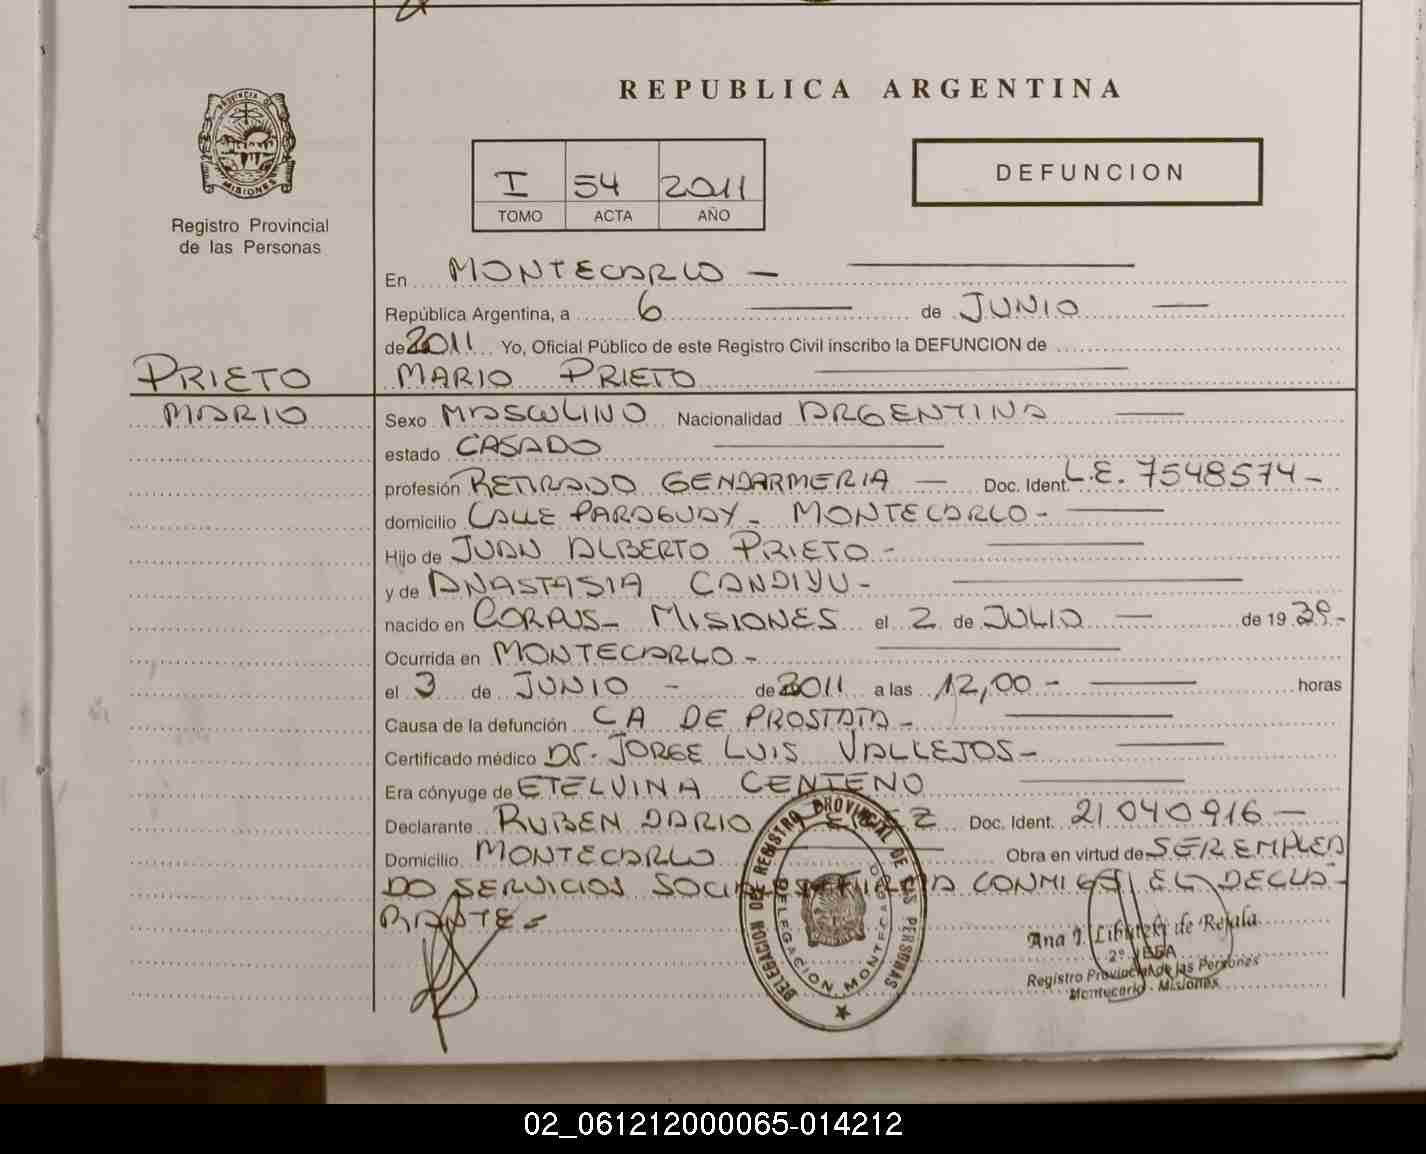 REPUBLICA ARGENTINA
PROVINCIA DE MISIONES
Registro Provincial
de las Personas
I 54 2011
TOMO ACTA AÑO
DEFUNCION
En MONTECARLO —
República Argentina, a 6 de JUNIO —
de 2011 Yo, Oficial Público de este Registro Civil inscribo la DEFUNCION de
PRIETO
MARIO
MARIO PRIETO
Sexo MASCULINO Nacionalidad ARGENTINA
estado CASADO
profesión RETIRADO GENDARMERIA — Doc. Ident. L.E. 7548574-
domicilio CALLE PARAGUAY - MONTECARLO-
Hijo de JUAN ALBERTO PRIETO-
y de ANASTASIA CANDIYU-
nacido en CORPUS- MISIONES el 2 de JULIO — de 1939.-
Ocurrida en MONTECARLO-
el 3 de JUNIO - de 2011 a las 12,00 - horas
Causa de la defunción CA DE PROSTATA-
Certificado médico Dr. JORGE LUIS VALLEJOS-
Era cónyuge de ETELVINA CENTENO
Declarante RUBEN DARIO Doc. Ident. 21040916 —
Domicilio MONTECARLO Obra en virtud de SER EMPLEA
DO SERVICIOS SOCIALES- FIRMA CONMIGO EL DECLA-
RANTE-
DELEGACION DE REGISTRO PROVINCIAL DE LAS PERSONAS
DELEGACION MONTECARLO
Ana I. de Rejala
Registro Provincial de las Personas
Montecarlo - Misiones
02_061212000065-014212